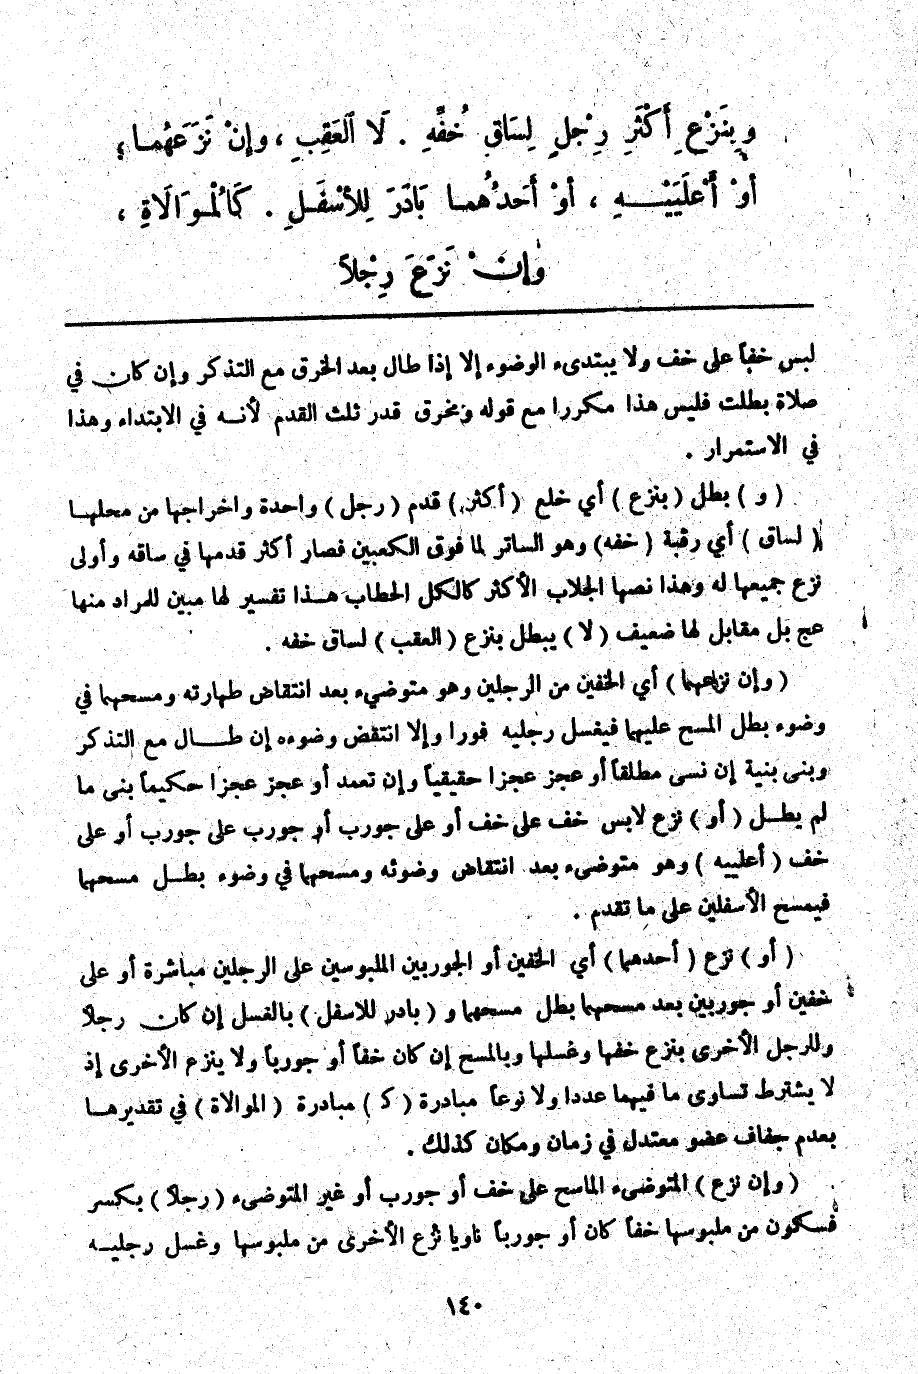 وبِنَزْعِ أَكْثَرِ رِجْلٍ لِسَاقِ خُفِّهِ . لَا الْعَقِبِ ، وإِنْ نَزَعَهُمـا ؛
أوْ أَعْلَيَيْـــهِ ، أوْ أَحَدُهُمـا بَادَرَ لِلأسْفَـلِ . كَالْمُـوَالَاةِ ،
وَإِنْ نَزَعَ رِجْلاً
لبس خفاً على خف ولا يبتدىء الوضوء إلا إذا طال بعد الخرق مع التذكر وإن كان في
صلاة بطلت فليس هذا مكررا مع قوله وبخرق قدر ثلث القدم لأنـه في الابتداء وهذا
في الاستمرار .
( و ) بطل ( بنزع ) أي خلع ( أكثر ) قدم ( رجل ) واحدة واخراجها من محلهـا
( لساق ) أي رقبة ( خفه ) وهو الساتر لما فوق الكعبين فصار أكثر قدمها في ساقه وأولى
نزع جميعها له وهذا نصها الجلاب الأكثر كالكل الحطاب هـذا تفسير لها مبين للمراد منها
عج بل مقابل لها ضعيف ( لا ) يبطل بنزع ( العقب ) لساق خفه .
( وإن نزعهما ) أي الخفين من الرجلين وهو متوضىء بعد انتقاض طهارته ومسحهما في
وضوء بطل المسح عليهما فيغسل رجليه فورا وإلا انتقض وضوءه إن طـــال مع التذكر
وبنى بنية إن نسى مطلقاً أو عجز عجزا حقيقياً وإن تعمد أو عجز عجزا حكيماً بنى ما
لم يطـل ( أو ) نزع لابس خف على خف أو على جورب أو جورب على جورب أو على
خف ( أعلييه ) وهو متوضىء بعد انتقاض وضوئه ومسحهما في وضوء بطـل مسحهما
فيمسح الأسفلين على ما تقدم .
( أو ) نزع ( أحدهما ) أي الخفين أو الجوربين الملبوسين على الرجلين مباشرة أو على
خفين أو جوربين بعد مسحهما بطل مسحهما و ( بادر للاسفل ) بالغسل إن كان رجلاً
وللرجل الأخرى بنزع خفها وغسلها وبالمسح إن كان خفاً أو جورباً ولا ينزع الأخرى إذ
لا يشترط تساوى ما فيهما عددا ولا نوعاً مبادرة ( كـ ) مبادرة ( الموالاة ) في تقديرهـا
بعدم جفاف عضو معتدل في زمان ومكان كذلك .
( وإن نزع ) المتوضىء الماسح على خف أو جورب أو غير المتوضىء ( رجلاً ) بكسر
فسكون من ملبوسها خفاً كان أو جورباً ناويا نزع الأخرى من ملبوسها وغسل رجليـه
١٤٠